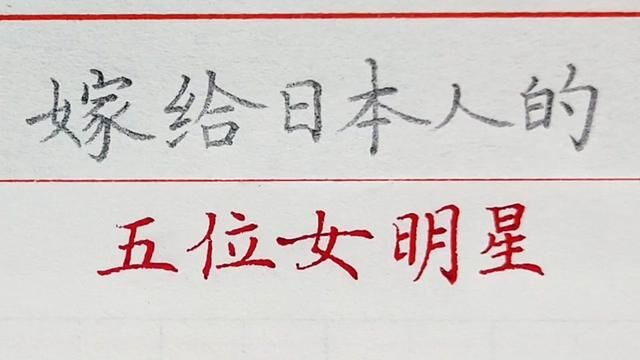 嫁给日本人的
五位女明星